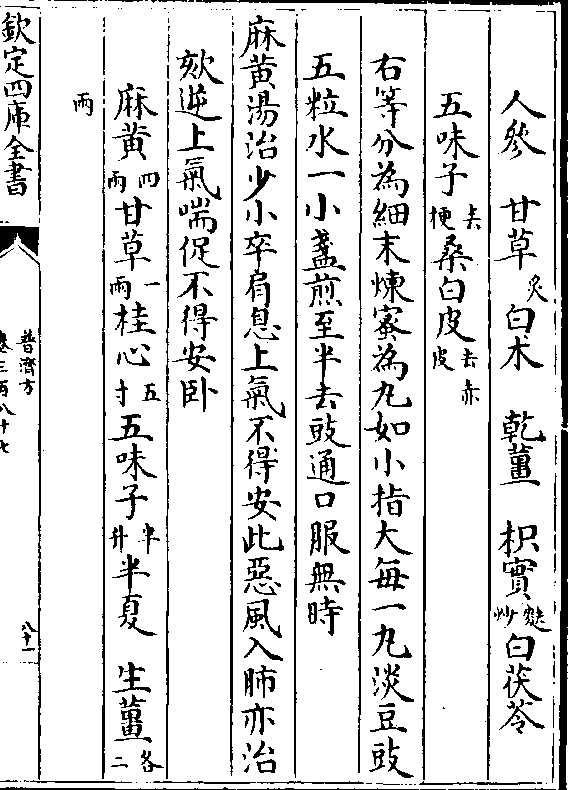 人參　甘草炙白术　乾薑　枳實麩炒白茯苓
五味子去梗桑白皮去赤皮
右等分為細末煉蜜為丸如小指大每一丸淡豆豉
五粒水一小盞煎至半去豉通口服無時
麻黄湯治少小卒肩息上氣不得安此惡風入肺亦治
欬逆上氣喘促不得安卧
麻黄四兩甘草一兩桂心五寸五味子半升半夏　生薑各二
兩
欽定四庫全書
普濟方
卷三百八十七
八十一